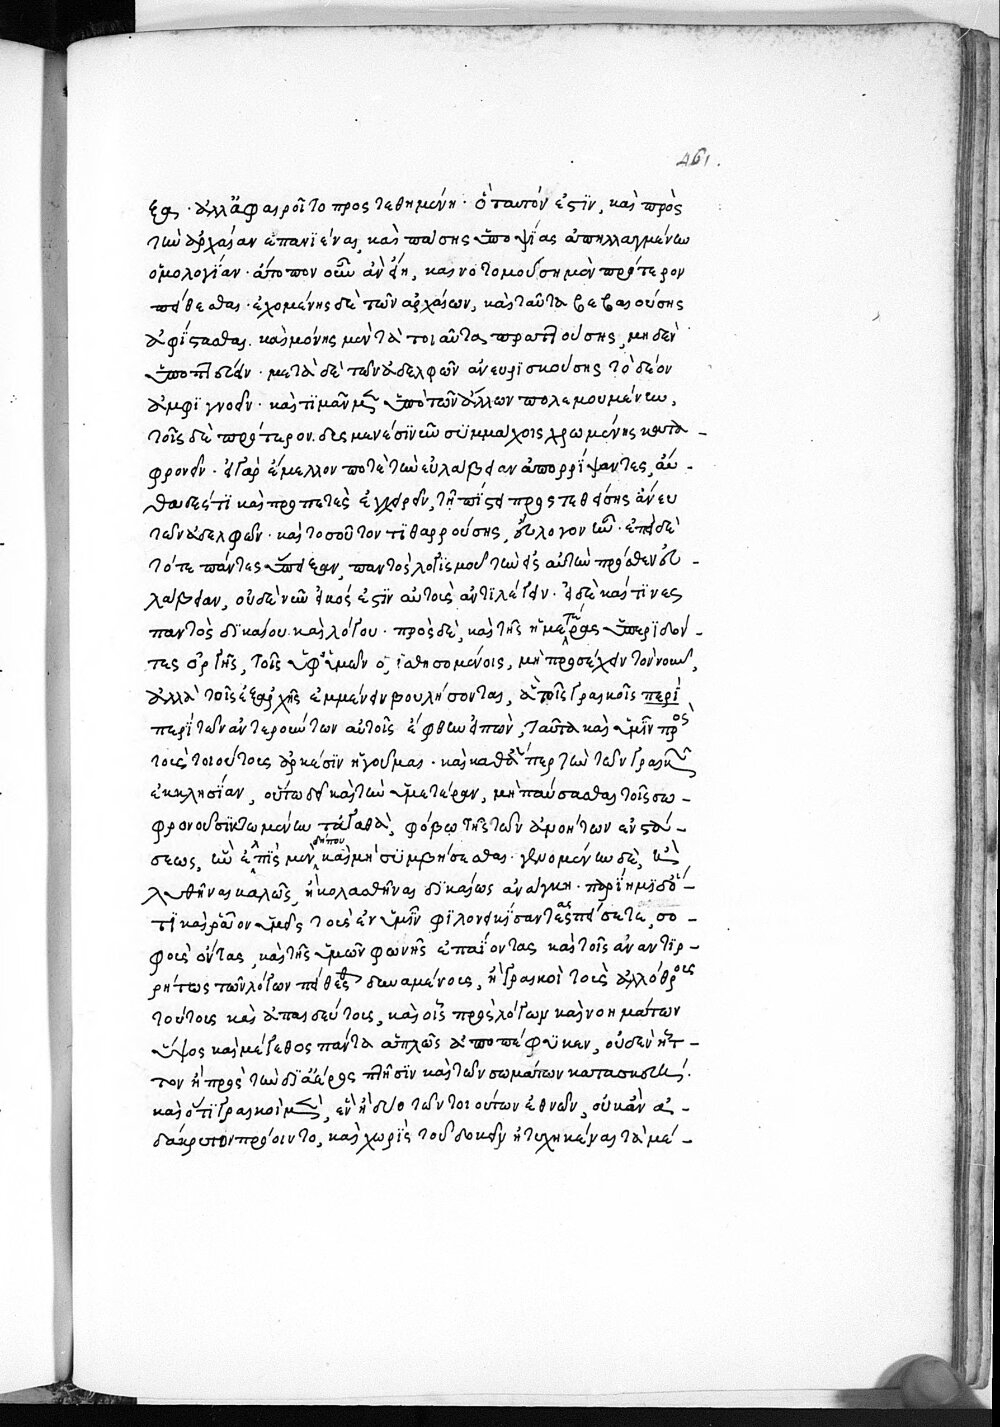 461.
ξαι· ἀλλ' ἀφαιροῖτο προστεθημένη· ὃ ταυτόν ἐστιν, καὶ πρὸς
τὴν ἀρχαίαν ἐπανιέναι, καὶ πάσης ὑποψίας ἀπηλλαγμένην
ὁμολογίαν· ἄτοπον οὖν ἂν εἴη, καινοτομούση μὲν πρότερον
πείθεσθαι· ἐχομένης δὲ τῶν ἀρχαίων, καὶ ταῦτα βεβαιούσης
ἀφίστασθαι. καὶ μόνης μὲν τὰ τοιαῦτα πραττούσης, μηδὲν
ὑποπτεύειν· μετὰ δὲ τῶν ἀδελφῶν ἀνευρισκούσης τὸ δέον
ἀμφιγνοεῖν· καὶ τιμᾶν μὲν ὑπὸ τῶν ἄλλων πολεμουμένην,
τοῖς δὲ πρότερον δυσμενέσιν νῦν συμμάχοις χρωμένης κατα-
φρονεῖν· εἰ γὰρ ἔμελλον ποτὲ τὴν εὐλάβειαν ἀπορρίψαντες, αὐ-
θαδές τι καὶ προπετὲς ἐγχειρεῖν, τῇ πίστει προστεθείσης ἄνευ
τῶν ἀδελφῶν· καὶ τοσοῦτόν τι θαρρούσης, εὔλογον ἦν· ἐπεὶ δὲ
τότε πάντες ὑπεῖξαν, παντὸς λογισμοῦ τὴν εἰς αὐτὴν πρόσθεν εὐ-
λάβειαν, οὐδὲ νῦν εἰκός ἐστιν αὐτοῖς ἀντιλέγειν· εἰ δὲ καί τινες
παντὸς δικαίου καὶ λόγου· πρὸς δὲ, καὶ τῆς ἡμετέρας ὑπεριδόν-
τες ὀργῆς, τοῖς ὑφ' ὑμῶν ὁρισθησομένοις, μὴ προσέχειν τὸν νοῦν,
ἀλλὰ τοῖς ἐξαρχῆς ἐμμένειν βουλήσονται, ἃ τοῖς Γραικοῖς περὶ
περὶ τῶν ἀντερούντων αὐτοῖς ἔφθην εἰπὼν, ταῦτα καὶ ὑμῖν πρὸς
τοὺς τοιούτους ἀρκέσιν ἡγοῦμαι· καὶ καθάπερ τὴν τῶν Γραικῶν
ἐκκλησίαν, οὕτω δὴ καὶ τὴν ὑμετέραν, μὴ παύσασθαι τοῖς σω-
φρονοῦσιν τωμένην τἀγαθὰ, φόβῳ τῆς τῶν ἀμοήτων ἐνστά-
σεως, ἣν ἐλπὶς μὲν δήπου καὶ μὴ συμβήσεσθαι· γενομένην δὲ, ἢ
λυθῆναι καλῶς, ἢ κολασθῆναι δικαίως ἀνάγκη· παρ' ἡμῖν δ' ἔ-
τι καὶ ῥᾷον ὑμᾶς τοὺς ἐν ὑμῖν φιλονεικήσαντας πείσετε, σο-
φοὺς ὄντας, καὶ τῆς ὑμῶν φωνῆς ἐπαΐοντας καὶ τοῖς ἀναντιρ-
ρήτως τῶν λόγων πείθεσθαι δυναμένοις, ἢ Γραικοὶ τοὺς ἀλλόθρους
τούτοις καὶ ἀπαιδεύτους, καὶ οἷς πρὸς λόγων καὶ νοημάτων
ὕψος καὶ μέγεθος πάντα ἁπλῶς ἀποπέφυκεν, οὐδὲν ἧτ-
τον ἢ πρὸς τὴν δι' ἀέρος πτῆσιν καὶ τῶν σωμάτων κατασκευή.
καὶ ὅτι Γραικοὶ μὲν, εἰ ἢ δύο τῶν τοιούτων ἐθνῶν, οὐκ ἂν ἀ-
δάκρυτον προοῖντο, καὶ χωρὶς τοῦ δοκεῖν ἠτυχηκέναι τὰ μέ-